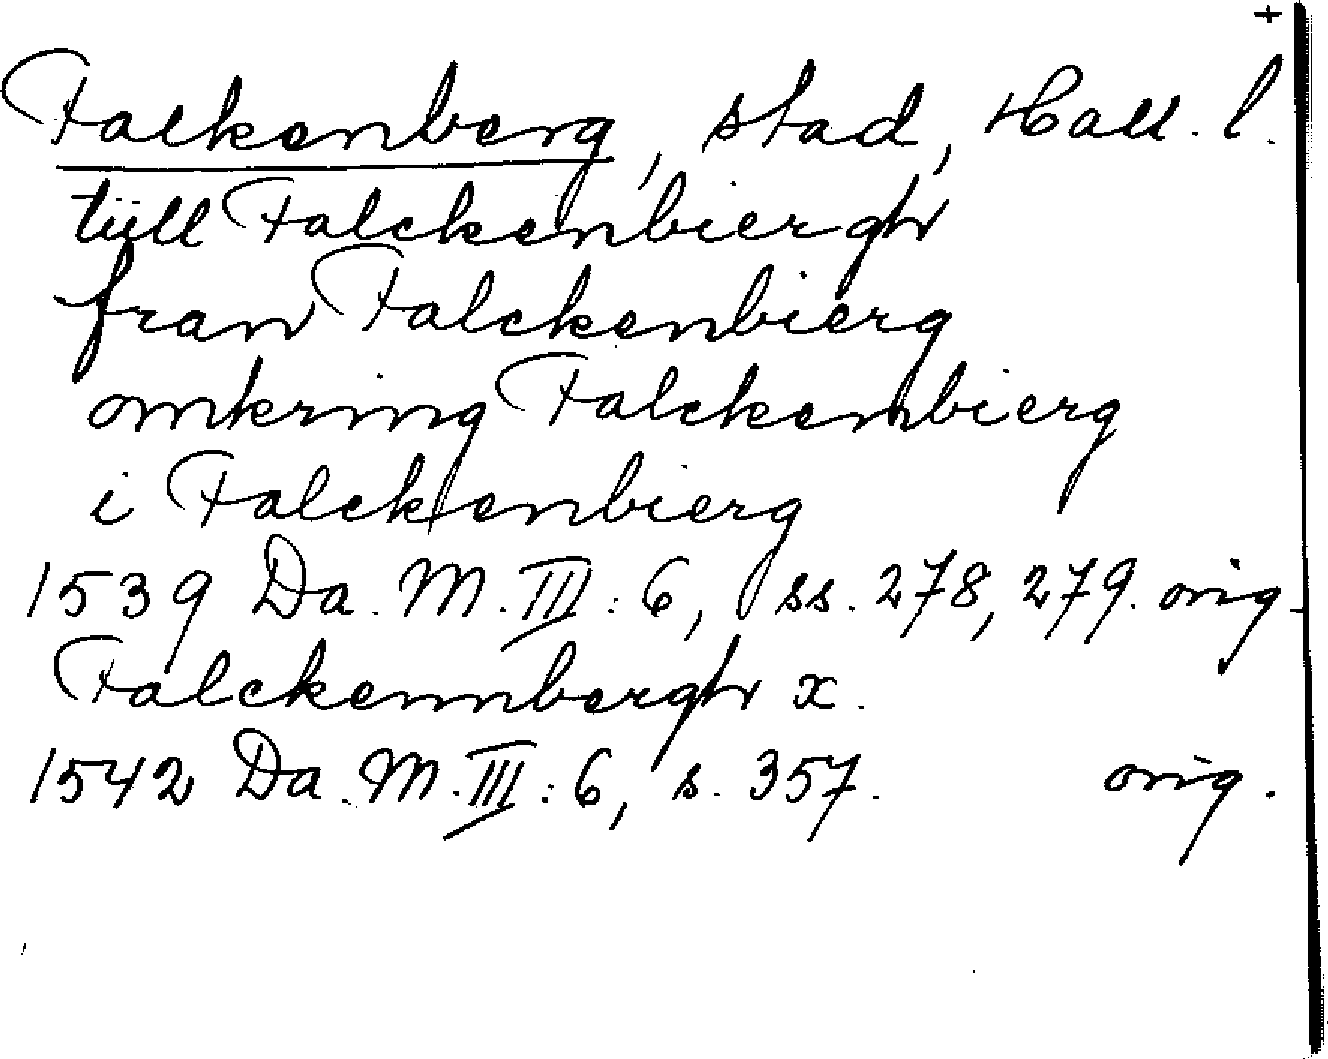 +
Falkenberg, stad, Hall. l.
tiill Falckenbiergh
fran Falckenbierg
omkring Falckenbierg
i Falckenbierg
1539 Da. M. III: 6, ss. 278, 279. orig.
Falckennbergh x.
1542 Da. M. III: 6, s. 357. orig.